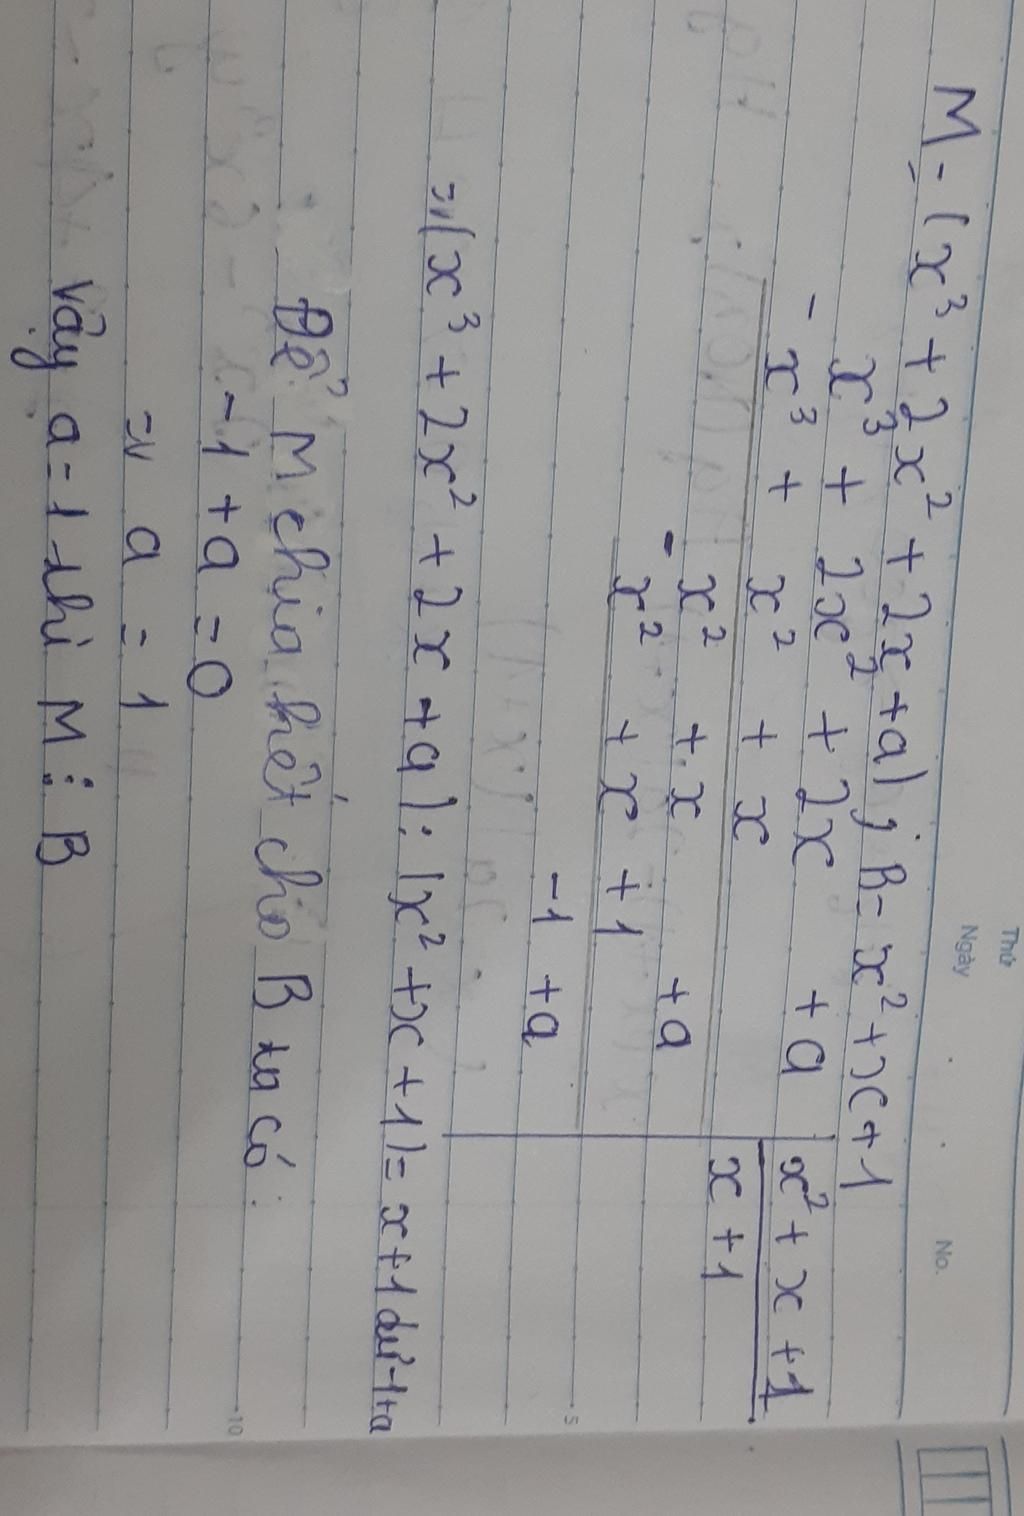 Thứ
Ngày
No.
M = (x³ + 2x² + 2x + a) ; B = x² + x + 1
x³ + 2x² + 2x + a | x² + x + 1
- x³ + x² + x | x + 1
- x² + x + a
x² + x + 1
-1 + a
=> (x³ + 2x² + 2x + a) : (x² + x + 1) = x + 1 dư -1+a
5
Để M chia hết cho B ta có :
-1 + a = 0
10
=> a = 1
Vậy a = 1 thì M ⋮ B